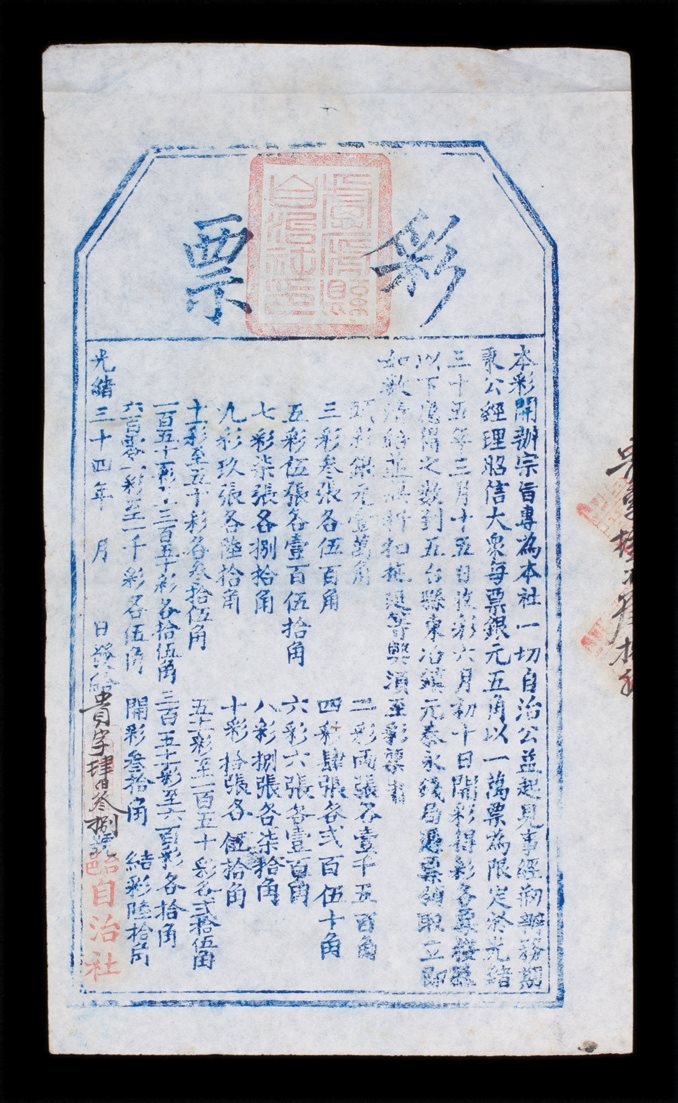 彩票
本彩開辦宗旨專為本社一切自治公益起見事經辦務期
秉公經理昭信大衆每票銀元五角以一萬票為限定於光緒
三十五年三月十五日六月初十日開彩得彩各票按照
以下應得之數到五台縣東冶鎮元泰永錢局憑票領取立即
如數須至彩票者
頭彩銀元壹萬角
二彩兩張各壹千五百角
三彩叁張各伍百角
四彩肆張各弍百伍十角
五彩伍張各壹百伍拾角
六彩六張各壹百角
七彩柒張各捌拾角
八彩捌張各柒拾角
九彩玖張各陸拾角
十彩拾張各伍拾角
十一彩至五十彩各叁拾伍角
五十一彩至一百五十彩各弍拾伍角
一百五十一彩至三百五十彩各拾伍角
三百五十一彩至六百彩各拾角
六百零一彩至一千彩各伍角
開彩叁拾角
結彩陸拾角
光緒三十四年 月 日發給
貴字肆百叁捌號
自治社